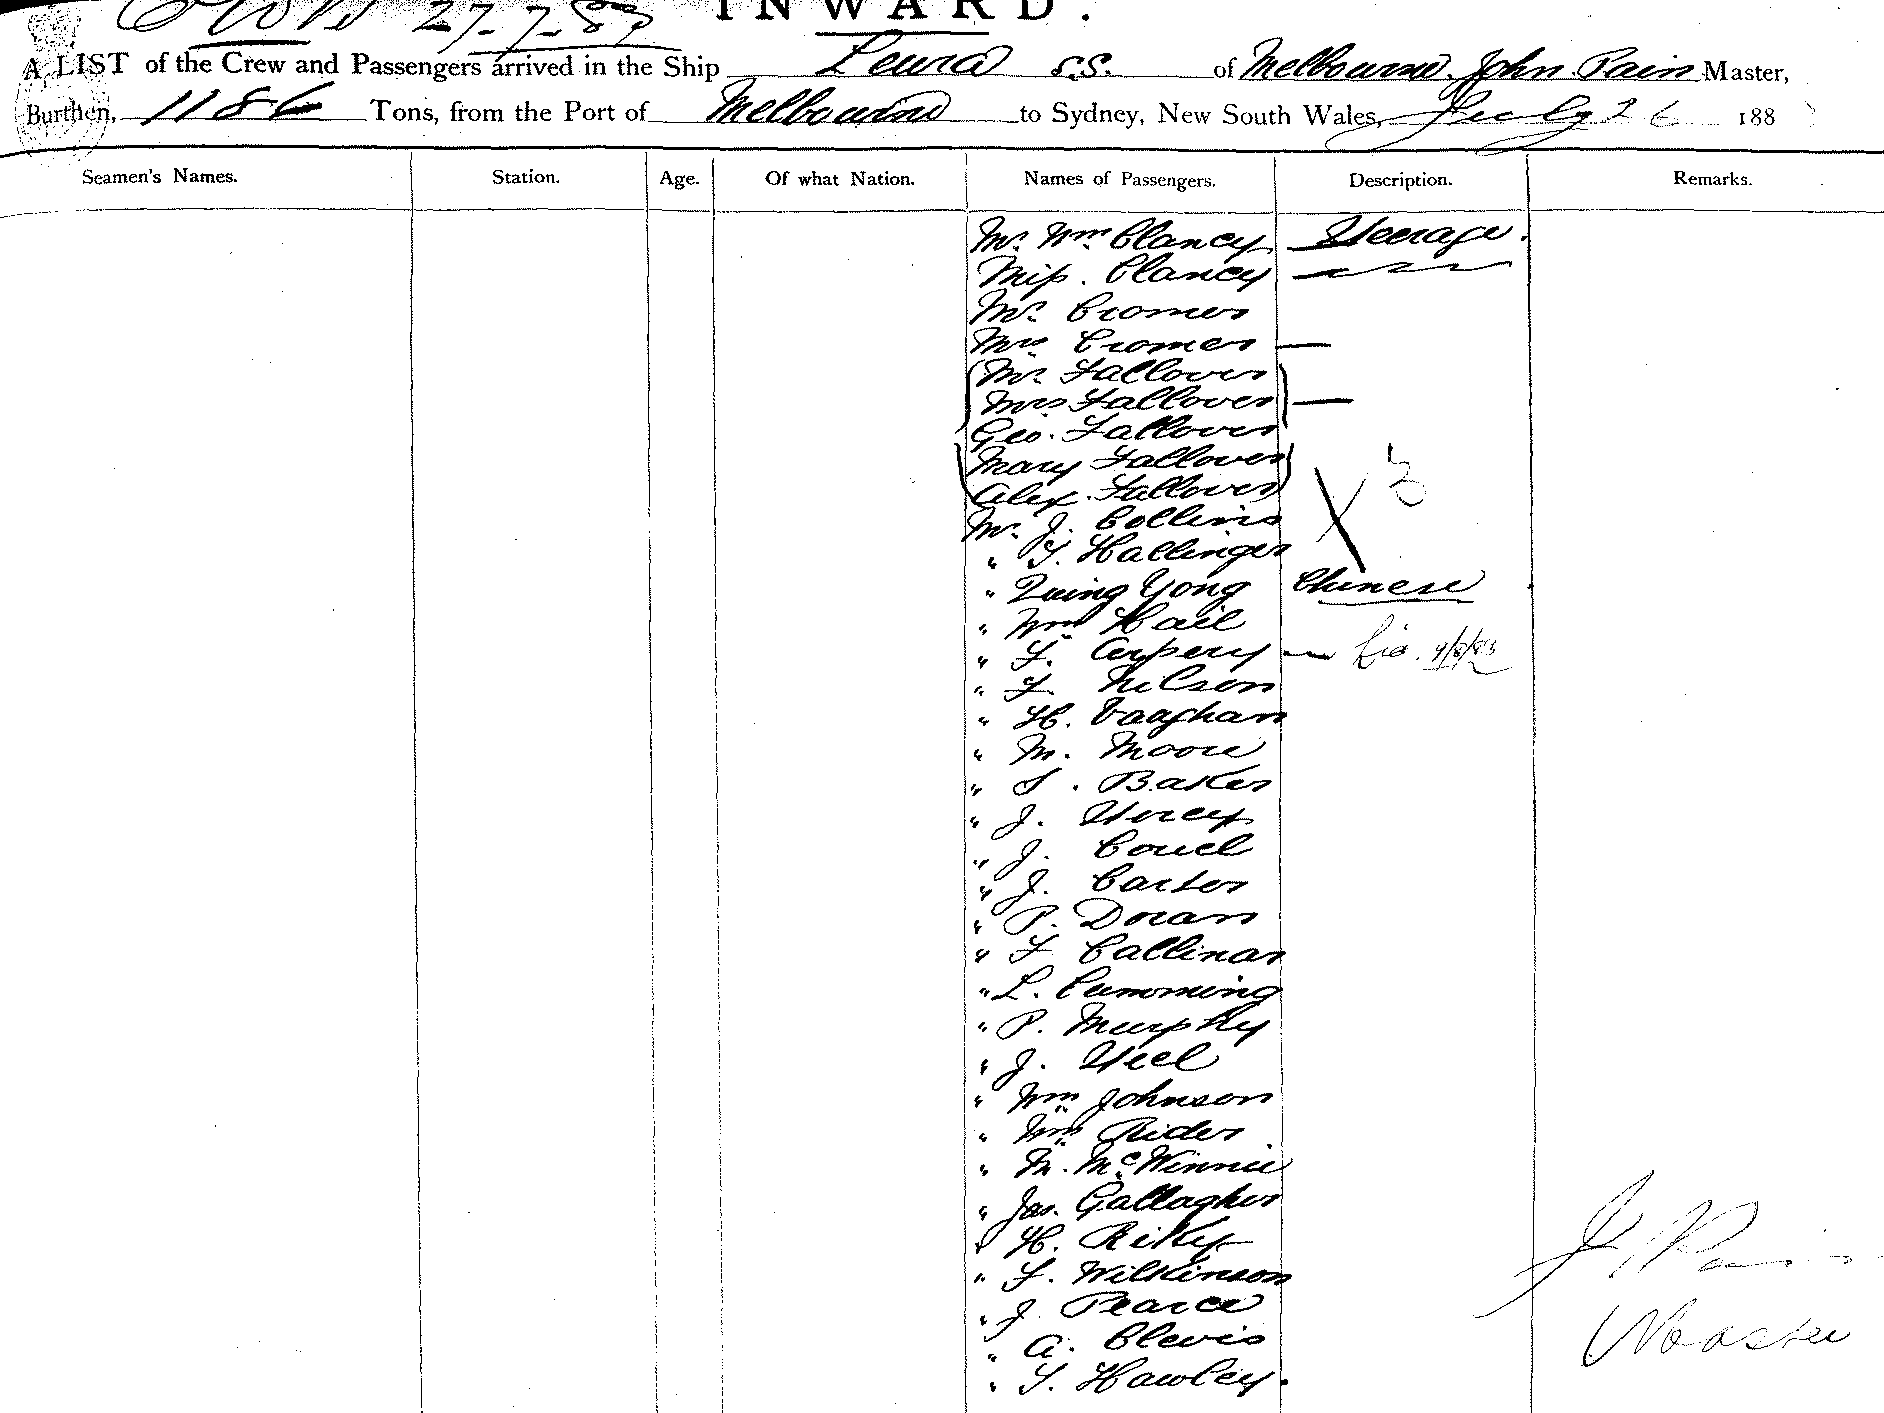 27-7-83
INWARD.
A LIST of the Crew and Passengers arrived in the Ship Leura s.s. of Melbourne, John Pain Master,
Burthen, 1186 Tons, from the Port of Melbourne to Sydney, New South Wales, July 26 188
Seamen's Names. Station. Age. Of what Nation. Names of Passengers. Description. Remarks.
Mr. Wm Clancy Steerage.
Miss. Clancy
Mr. Cromer
Mrs Cromer —
Mr. Fallover
Mrs Fallover —
Geo. Fallover
Mary Fallover
Alex. Fallover
Mr. J. Collins
" T. Hallinger
" Yong Chinese
" Wm Hail
" F.
" F Nilson
" H. Vaughan
" M. Moore
" S. Baker
" J. Storey
" J.
" J. Carter
" P. Doran
" F Callinan
" L. Cumming
" P. Murphy
" J. Steel
" Wm Johnson
" Wm Rider
" M. McWinnie
" Jas. Gallagher
" H.
" F. Wilkinson
" J. Pearce
" A. Clevis
" T. Hawley.
J Pain
Master